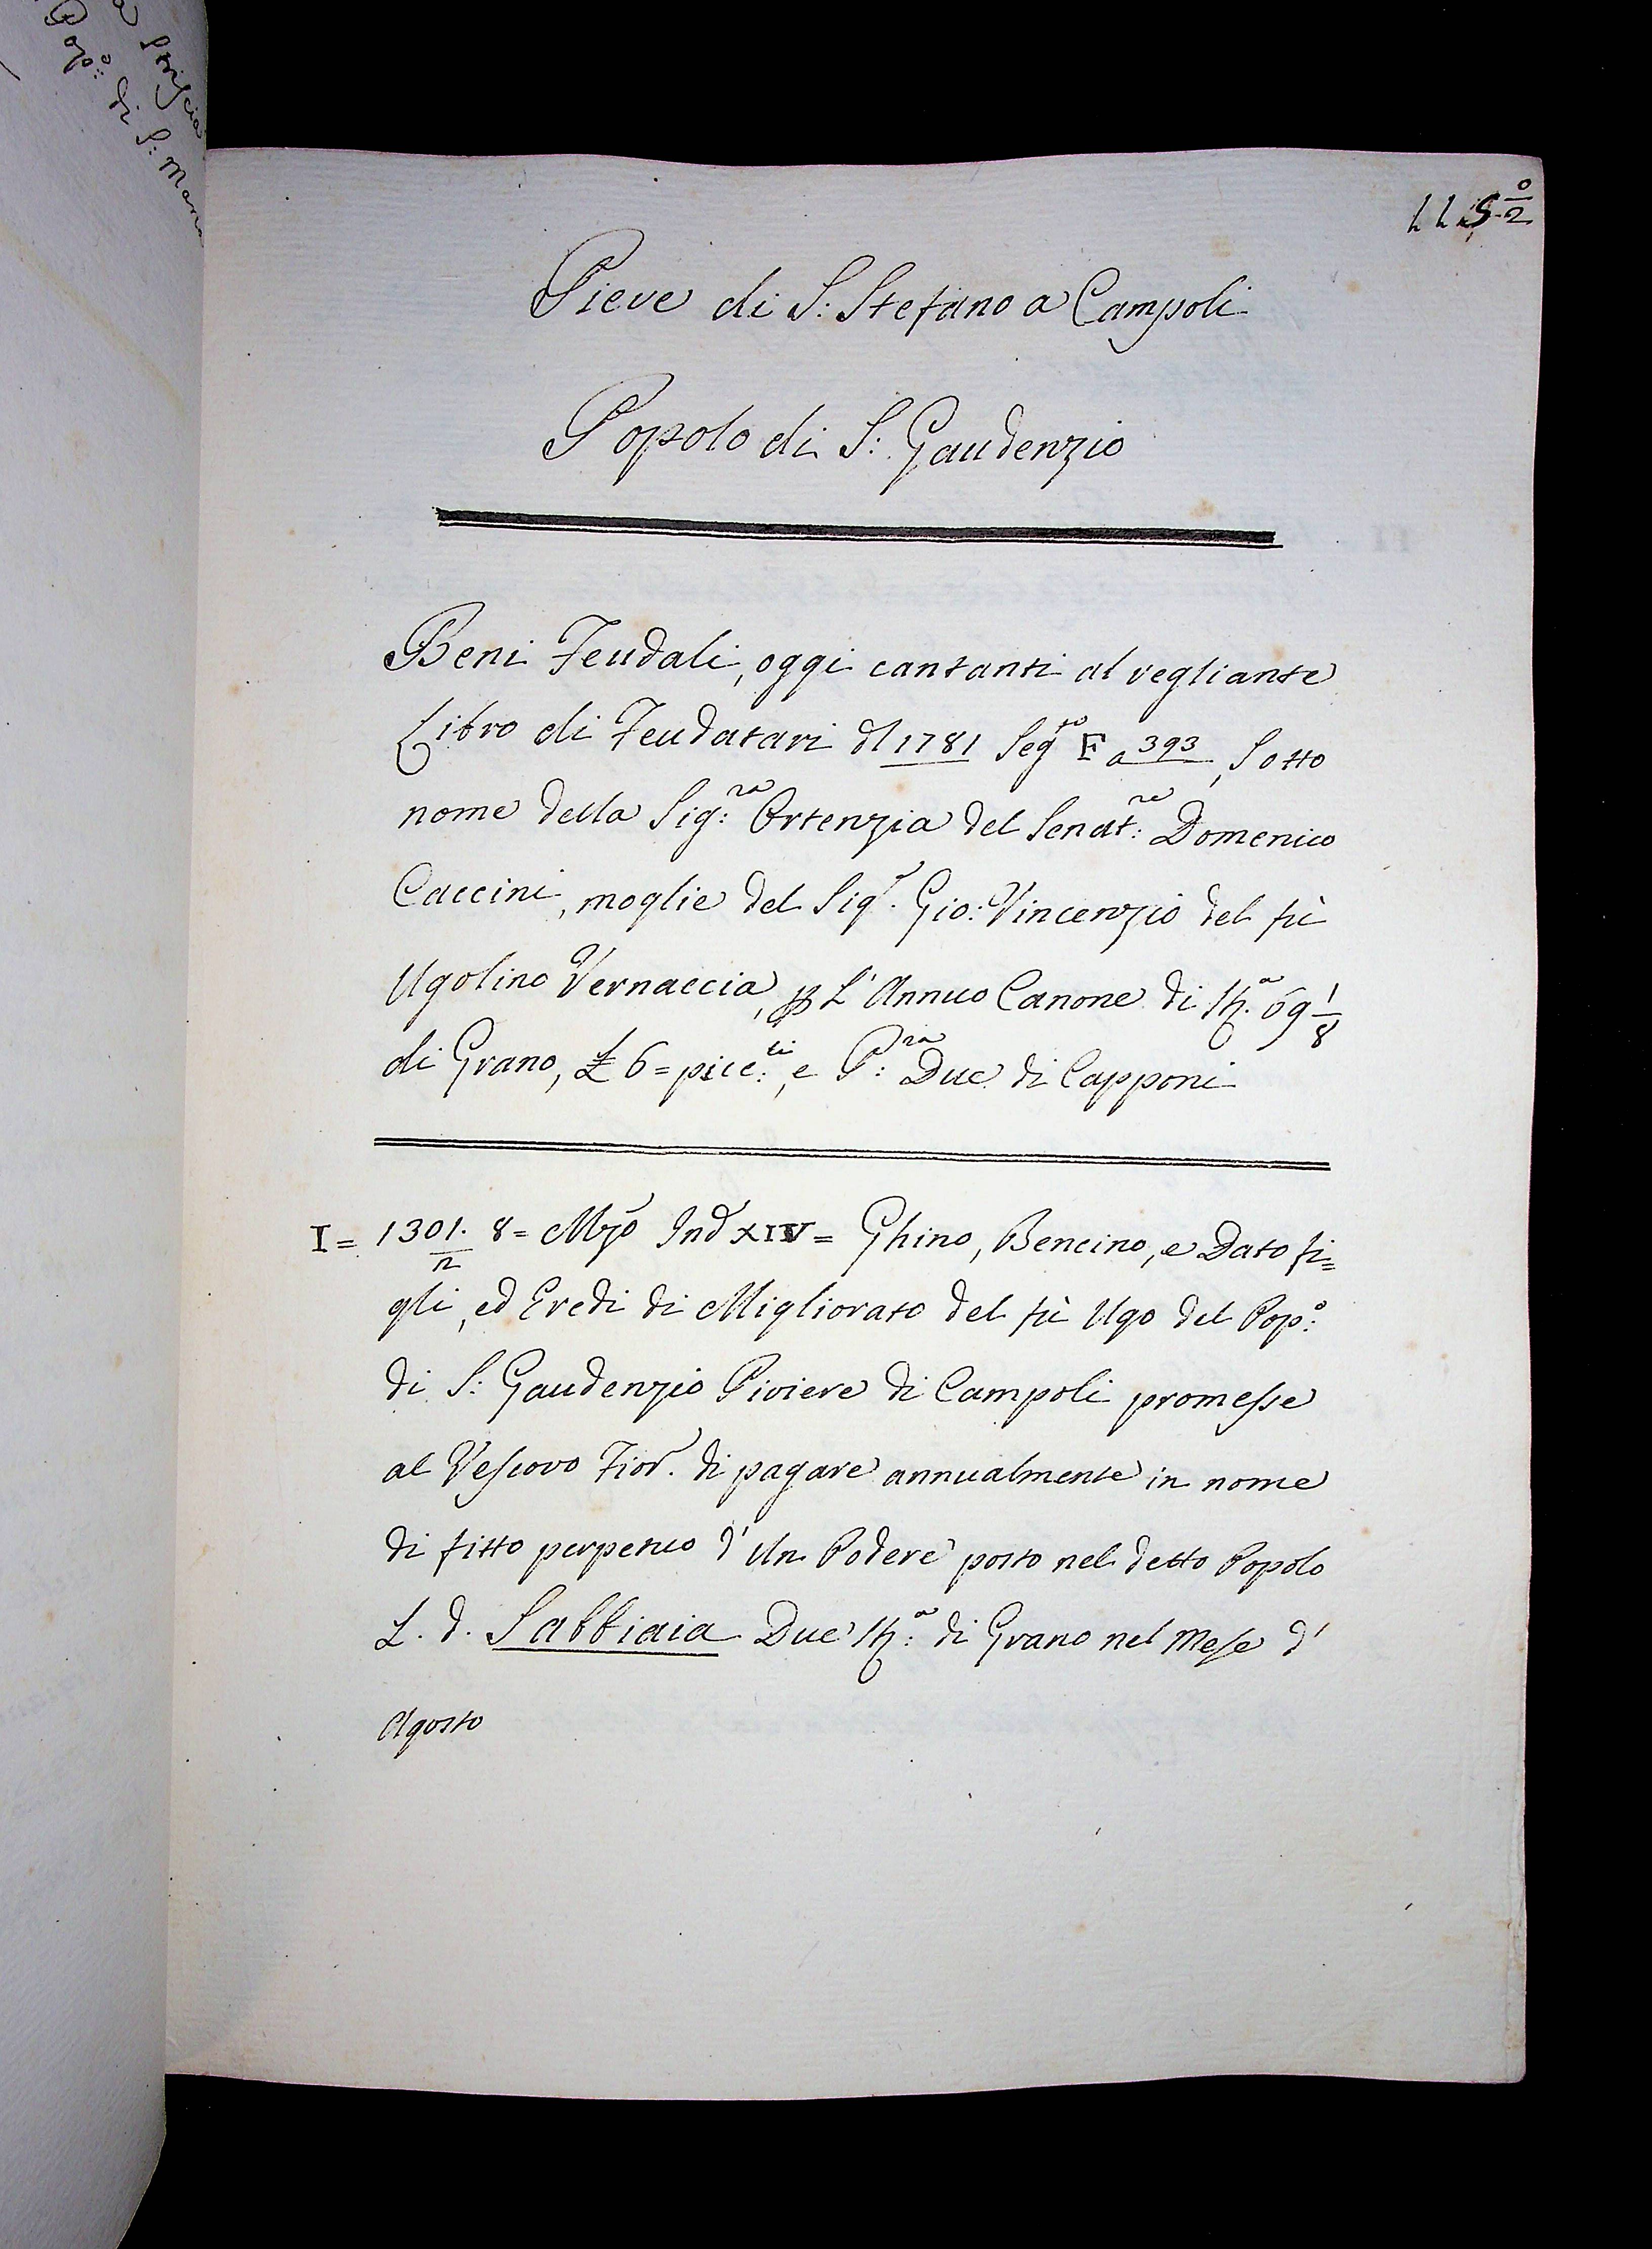 Pieve di S: Stefano a Campoli
Popolo di S: Gaudenzio
Beni Feudali, oggi cantanti al vegliante
Libro di Feudatari dl 1781 Seg.to F a 393, Sotto
nome della Sig:ra Ortenzia del Senat:re Domenico
Caccini, moglie del Sigr. Gio: Vincenzio del fù
Ugolino Vernaccia, p L' Annuo Canone di
di Grano, £ 6= picc:li, e P:ra Due di Capponi
I= 1301. 8= Mzo Ind XIV = Ghino, Bencino, e Dato fi=
gli, ed Eredi di Migliorato del fù Ugo del Pop:o
di S: Gaudenzio Piviere di Campoli promesse
al Vescovo Fior. di pagare annualmente in nome
di fitto perpetuo d' Un Podere posto nel detto Popolo
L. d. Sabbiaia Due St:a di Grano nel Mese d'
Agosto